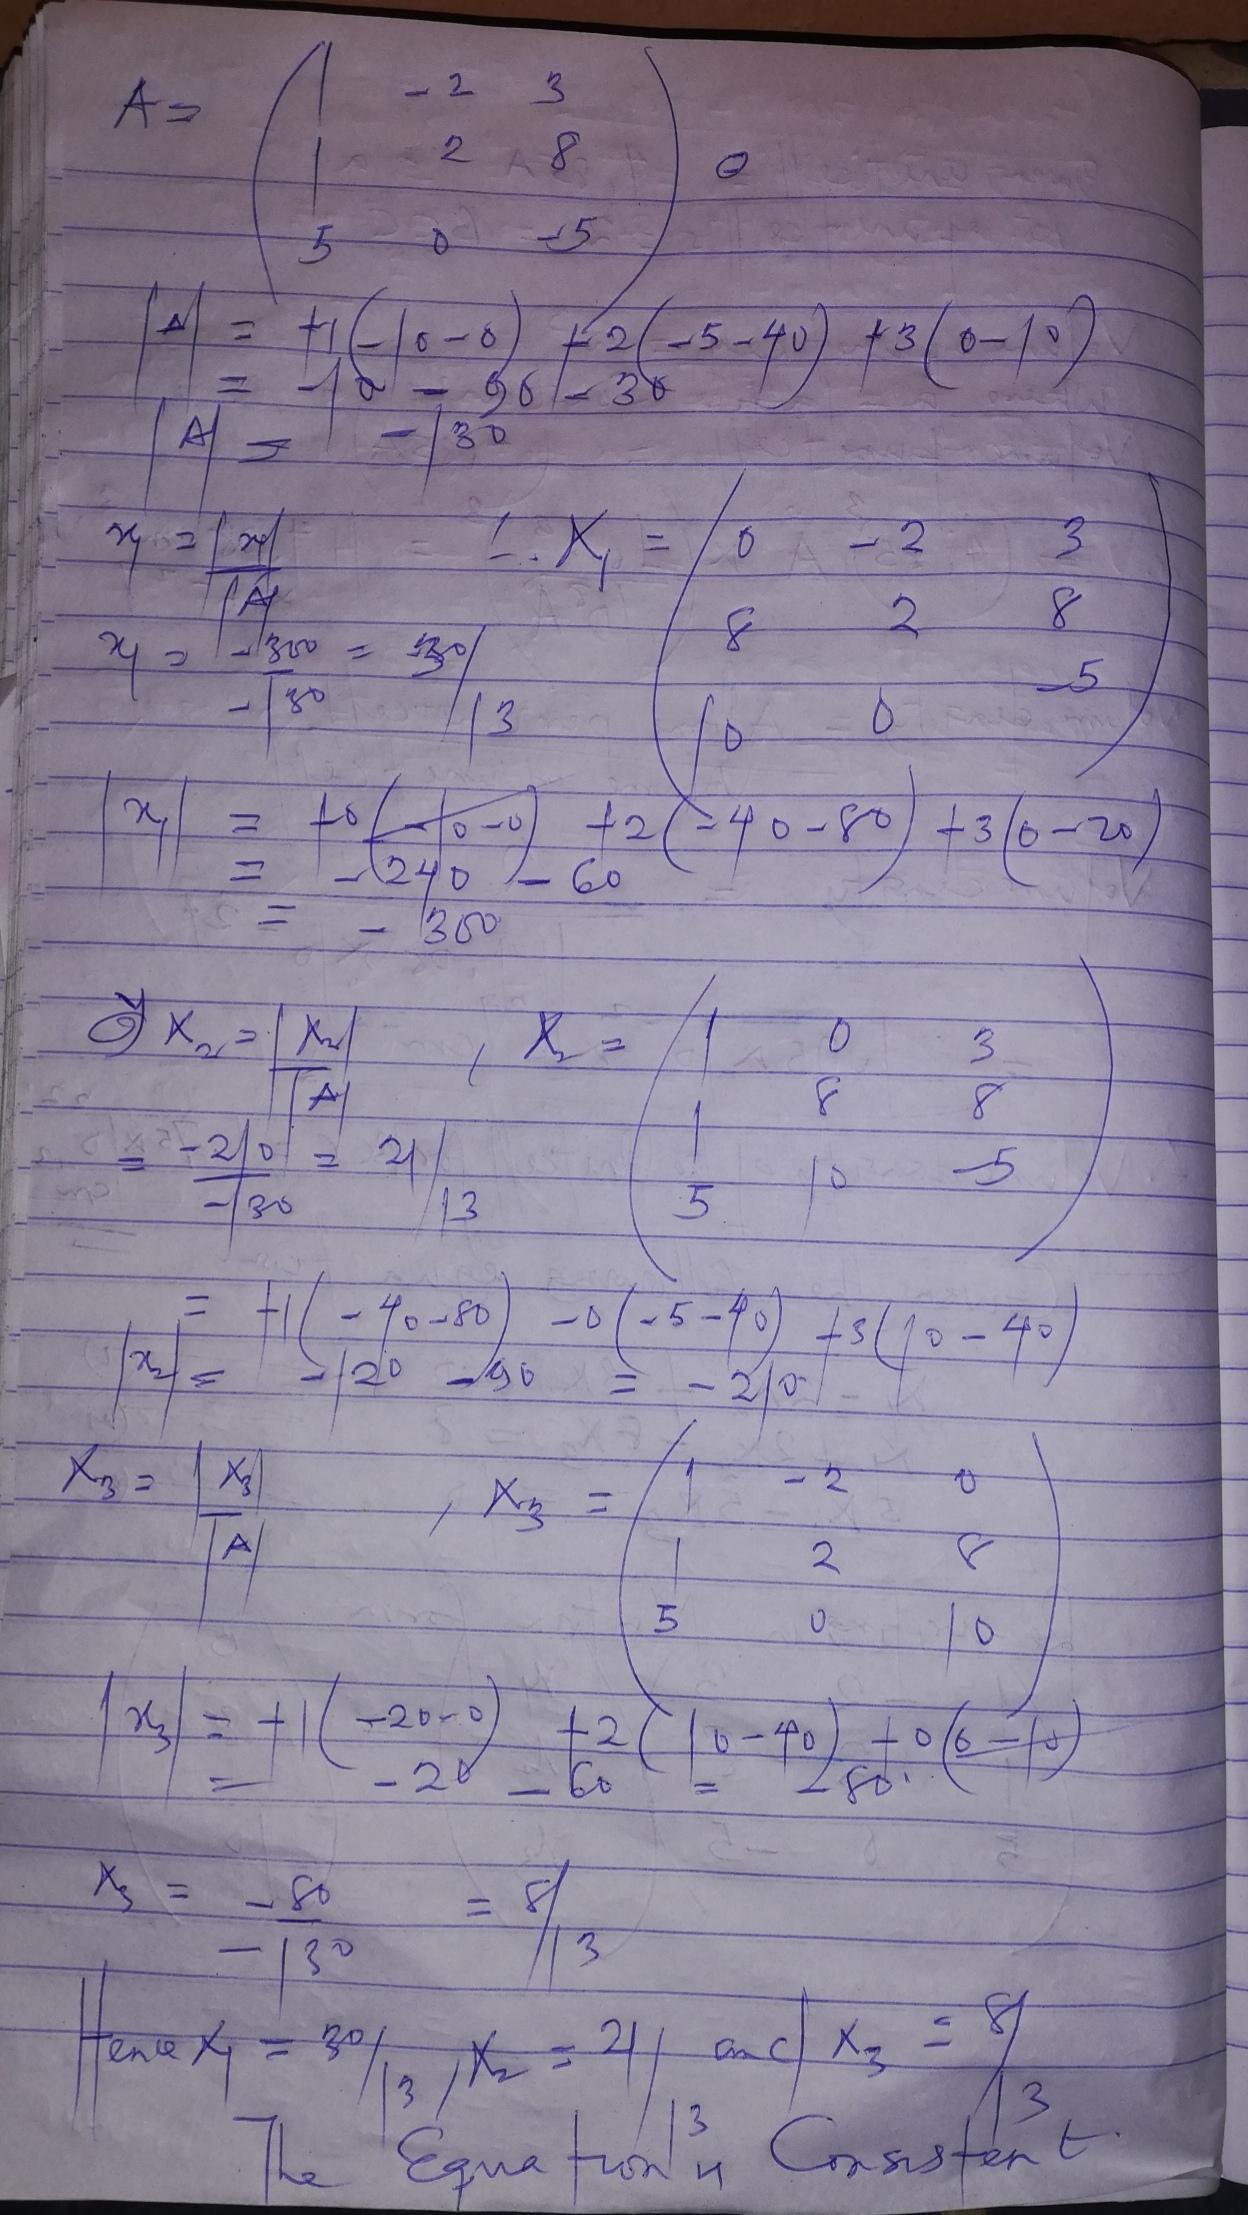 A = ( 1 -2 3
1 2 8
5 0 -5 )
|A| = +1(-10-0) +2(-5-40) +3(0-10)
= -10 - 90 - 30
|A| = -130
x₁ = |x₁| / |A| ∴ X₁ = ( 0 -2 3
8 2 8
10 0 -5 )
x₁ = -300 / -130 = 30/13
|x₁| = +0(-10-0) +2(-40-80) +3(0-20)
= -240 - 60
= -300
X₂ = |X₂| / |A| , X₂ = ( 1 0 3
1 8 8
5 10 -5 )
= -210 / -130 = 21/13
= +1(-40-80) -0(-5-40) +3(10-40)
|x₂| = -120 -90 = -210
X₃ = |X₃| / |A| , X₃ = ( 1 -2 0
1 2 8
5 0 10 )
|x₃| = +1(-20-0) +2(10-40) +0(0-10)
= -20 - 60 = -80
X₃ = -80 / -130 = 8/13
Hence X₁ = 30/13, X₂ = 21/13 and X₃ = 8/13
The Equation is Consistent.